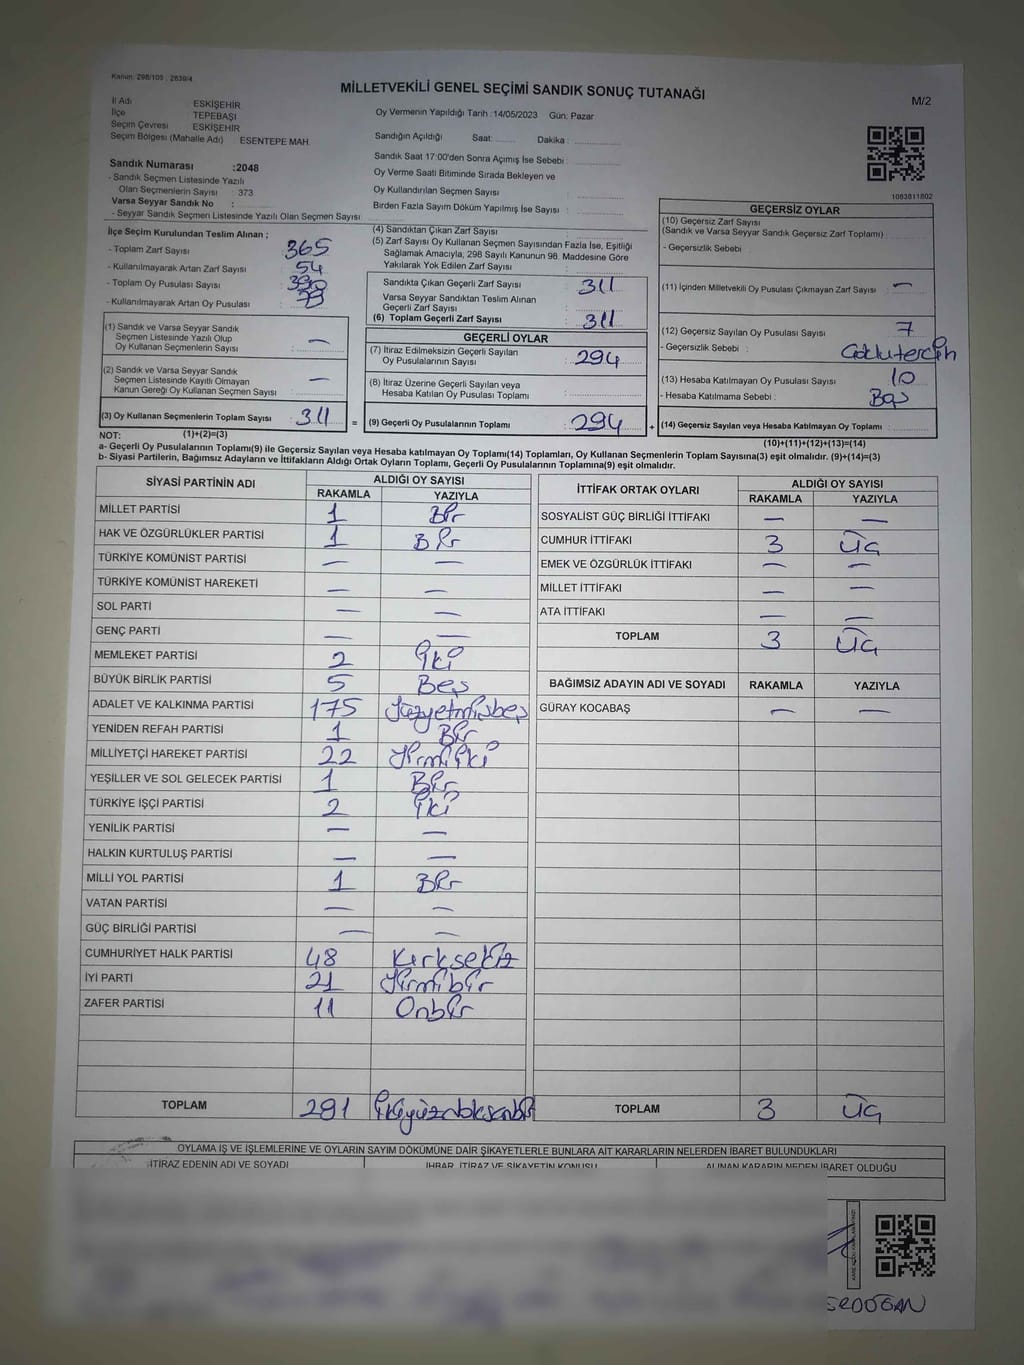 Kanun: 298/105 ; 2839/4
MİLLETVEKİLİ GENEL SEÇİMİ SANDIK SONUÇ TUTANAĞI
M/2
İl Adı ESKİŞEHİR
İlçe TEPEBAŞI
Seçim Çevresi ESKİŞEHİR
Seçim Bölgesi (Mahalle Adı) : ESENTEPE MAH.
Oy Vermenin Yapıldığı Tarih : 14/05/2023 Gün: Pazar
Sandığın Açıldığı Saat: Dakika :
Sandık Saat 17:00'den Sonra Açımış İse Sebebi :
Oy Verme Saati Bitiminde Sırada Bekleyen ve
Oy Kullandırılan Seçmen Sayısı :
Birden Fazla Sayım Döküm Yapılmış İse Sayısı :
Sandık Numarası :2048
- Sandık Seçmen Listesinde Yazılı
Olan Seçmenlerin Sayısı : 373
Varsa Seyyar Sandık No :
- Seyyar Sandık Seçmen Listesinde Yazılı Olan Seçmen Sayısı :
1063811802
İlçe Seçim Kurulundan Teslim Alınan ;
- Toplam Zarf Sayısı : 365
- Kullanılmayarak Artan Zarf Sayısı : 54
- Toplam Oy Pusulası Sayısı : 390
- Kullanılmayarak Artan Oy Pusulası : 79
(1) Sandık ve Varsa Seyyar Sandık
Seçmen Listesinde Yazılı Olup
Oy Kullanan Seçmenlerin Sayısı : —
(2) Sandık ve Varsa Seyyar Sandık
Seçmen Listesinde Kayıtlı Olmayan
Kanun Gereği Oy Kullanan Seçmen Sayısı : —
(3) Oy Kullanan Seçmenlerin Toplam Sayısı : 311
(4) Sandıktan Çıkan Zarf Sayısı :
(5) Zarf Sayısı Oy Kullanan Seçmen Sayısından Fazla İse, Eşitliği
Sağlamak Amacıyla, 298 Sayılı Kanunun 98. Maddesine Göre
Yakılarak Yok Edilen Zarf Sayısı :
Sandıkta Çıkan Geçerli Zarf Sayısı : 311
Varsa Seyyar Sandıktan Teslim Alınan
Geçerli Zarf Sayısı :
(6) Toplam Geçerli Zarf Sayısı : 311
GEÇERLİ OYLAR
(7) İtiraz Edilmeksizin Geçerli Sayılan
Oy Pusulalarının Sayısı : 294
(8) İtiraz Üzerine Geçerli Sayılan veya
Hesaba Katılan Oy Pusulası Toplamı :
= (9) Geçerli Oy Pusulalarının Toplamı : 294
GEÇERSİZ OYLAR
(10) Geçersiz Zarf Sayısı
(Sandık ve Varsa Seyyar Sandık Geçersiz Zarf Toplamı) :
- Geçersizlik Sebebi :
(11) İçinden Milletvekili Oy Pusulası Çıkmayan Zarf Sayısı : —
(12) Geçersiz Sayılan Oy Pusulası Sayısı : 7
- Geçersizlik Sebebi : Çoklu tercih
(13) Hesaba Katılmayan Oy Pusulası Sayısı : 10
- Hesaba Katılmama Sebebi : Boş
+ (14) Geçersiz Sayılan veya Hesaba Katılmayan Oy Toplamı :
NOT: (1)+(2)=(3)
(10)+(11)+(12)+(13)=(14)
a- Geçerli Oy Pusulalarının Toplamı(9) ile Geçersiz Sayılan veya Hesaba katılmayan Oy Toplamı(14) Toplamları, Oy Kullanan Seçmenlerin Toplam Sayısına(3) eşit olmalıdır. (9)+(14)=(3)
b- Siyasi Partilerin, Bağımsız Adayların ve İttifakların Aldığı Ortak Oyların Toplamı, Geçerli Oy Pusulalarının Toplamına(9) eşit olmalıdır.
SİYASİ PARTİNİN ADI ALDIĞI OY SAYISI
RAKAMLA YAZIYLA
MİLLET PARTİSİ 1 Bir
HAK VE ÖZGÜRLÜKLER PARTİSİ 1 Bir
TÜRKİYE KOMÜNİST PARTİSİ — —
TÜRKİYE KOMÜNİST HAREKETİ — —
SOL PARTİ — —
GENÇ PARTİ — —
MEMLEKET PARTİSİ 2 İki
BÜYÜK BİRLİK PARTİSİ 5 Beş
ADALET VE KALKINMA PARTİSİ 175 Yüzyetmişbeş
YENİDEN REFAH PARTİSİ 1 Bir
MİLLİYETÇİ HAREKET PARTİSİ 22 Yirmiiki
YEŞİLLER VE SOL GELECEK PARTİSİ 1 Bir
TÜRKİYE İŞÇİ PARTİSİ 2 İki
YENİLİK PARTİSİ — —
HALKIN KURTULUŞ PARTİSİ — —
MİLLİ YOL PARTİSİ 1 Bir
VATAN PARTİSİ — —
GÜÇ BİRLİĞİ PARTİSİ — —
CUMHURİYET HALK PARTİSİ 48 Kırksekiz
İYİ PARTİ 21 Yirmibir
ZAFER PARTİSİ 11 Onbir
TOPLAM 291 İkiyüzdoksanbir
İTTİFAK ORTAK OYLARI ALDIĞI OY SAYISI
RAKAMLA YAZIYLA
SOSYALİST GÜÇ BİRLİĞİ İTTİFAKI — —
CUMHUR İTTİFAKI 3 Üç
EMEK VE ÖZGÜRLÜK İTTİFAKI — —
MİLLET İTTİFAKI — —
ATA İTTİFAKI — —
TOPLAM 3 Üç
BAĞIMSIZ ADAYIN ADI VE SOYADI RAKAMLA YAZIYLA
GÜRAY KOCABAŞ — —
TOPLAM 3 Üç
OYLAMA İŞ VE İŞLEMLERİNE VE OYLARIN SAYIM DÖKÜMÜNE DAİR ŞİKAYETLERLE BUNLARA AİT KARARLARIN NELERDEN İBARET BULUNDUKLARI
İTİRAZ EDENİN ADI VE SOYADI İHBAR, İTİRAZ VE ŞİKAYETİN KONUSU ALINAN KARARIN NEDEN İBARET OLDUĞU